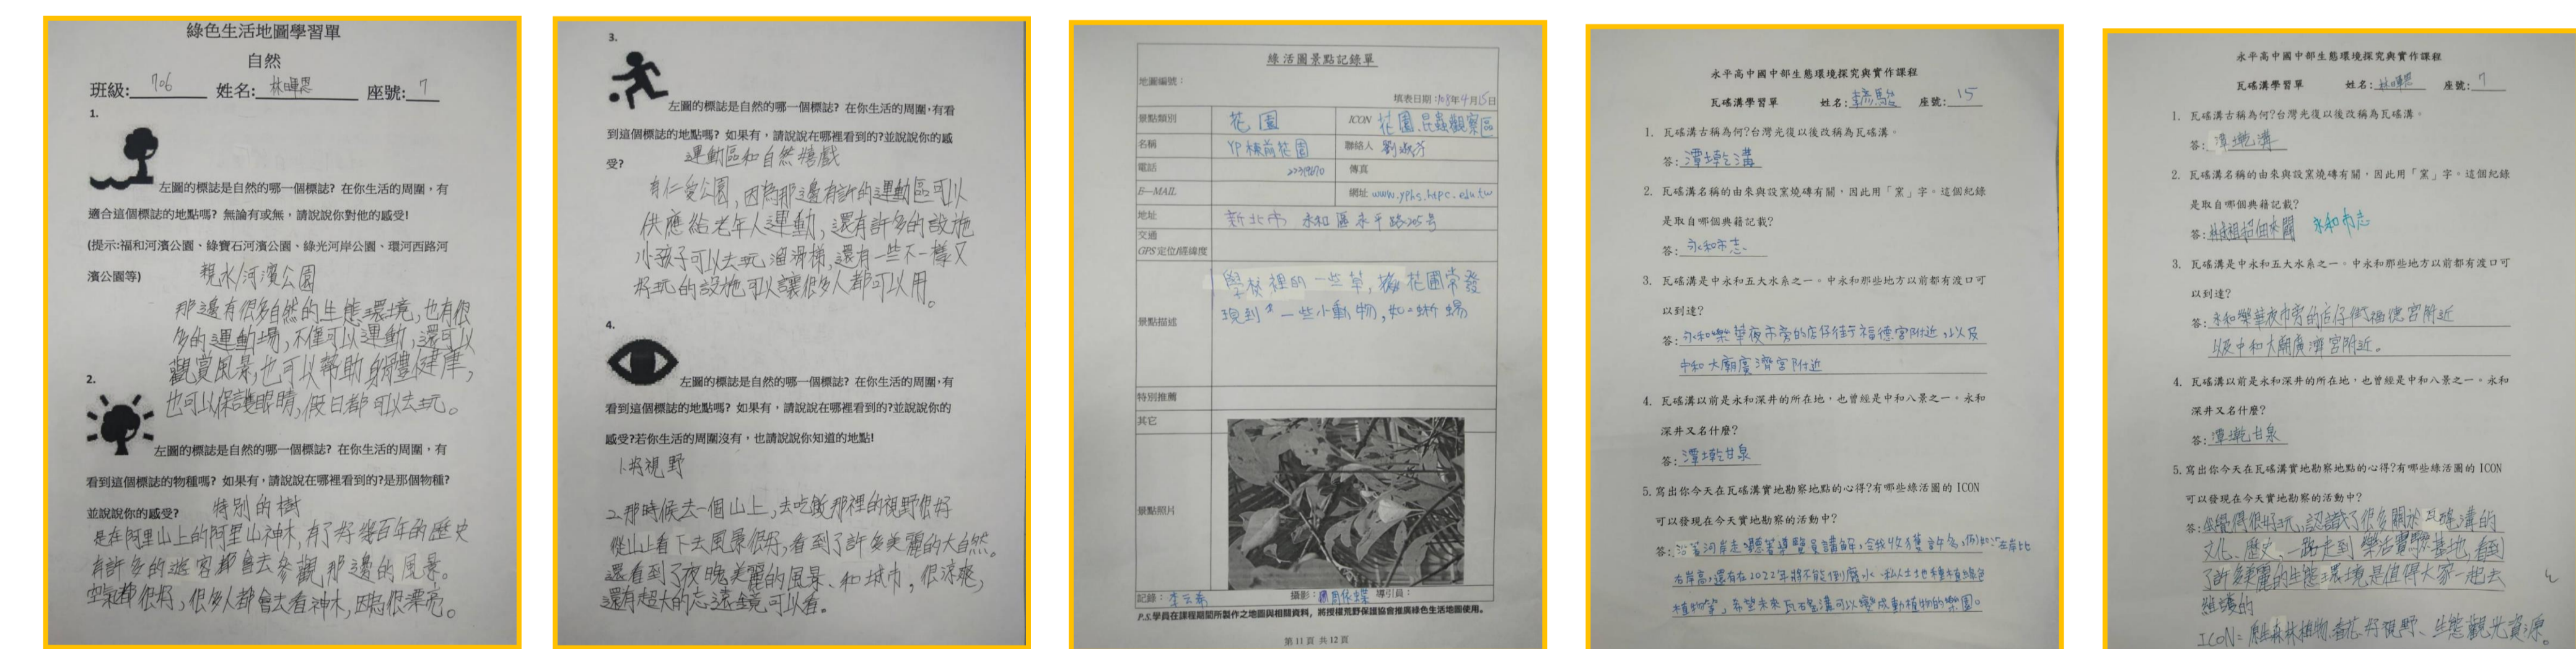 綠色生活地圖學習單
自然
班級: 706 姓名: 林暐恩 座號: 7
1.
左圖的標誌是自然的哪一個標誌? 在你生活的周圍，有
適合這個標誌的地點嗎? 無論有或無，請說說你對他的感受!
(提示:福和河濱公園、綠寶石河濱公園、綠光河岸公園、環河西路河
濱公園等)
親水/河濱公園
那邊有很多自然的生態環境,也有很
多的運動場,不僅可以運動,還可以
觀賞風景,也可以幫助身體健康,
也可以保護眼睛,假日都可以去玩。
2.
左圖的標誌是自然的哪一個標誌? 在你生活的周圍，有
看到這個標誌的物種嗎? 如果有，請說說在哪裡看到的?是那個物種?
並說說你的感受?
特別的樹
是在阿里山上的阿里山神木,有了好幾百年的歷史
有許多的遊客都會去參觀那邊的風景。
空氣都很好,很多人都會去看神木,因為很漂亮。
3.
左圖的標誌是自然的哪一個標誌? 在你生活的周圍，有看
到這個標誌的地點嗎? 如果有，請說說在哪裡看到的?並說說你的感
受?
運動區和自然嬉戲
有仁愛公園,因為那邊有許的運動區可以
供應給老年人運動,還有許多的設施
小孩子可以去玩溜滑梯,還有一些不一樣又
好玩的設施可以讓很多人都可以用。
4.
左圖的標誌是自然的哪一個標誌? 在你生活的周圍，有
看到這個標誌的地點嗎? 如果有，請說說在哪裡看到的?並說說你的
感受?若你生活的周圍沒有，也請說說你知道的地點!
1.好視野
2.那時候去一個山上,去吃飯那裡的視野很好
從山上看下去風景很好,看到了許多美麗的大自然。
還看到了夜晚美麗的風景、和城市,很涼爽,
還有超大的望遠鏡可以看。
綠活圖景點記錄單
地圖編號：
填表日期:108年4月15日
景點類別 花園 ICON 花園.昆蟲觀察區
名稱 YP校前花園 聯絡人
電話 22319670 傳真
E－MAIL 網址 www.yphs.ntpc.edu.tw
地址 新北市 永和區永平路205号
交通
GPS定位/經緯度
景點描述
學校裡的一些草, 花圃常發
現到 一些小動物,如:蜥蜴
特別推薦
其它
景點照片
記錄： 攝影： 導引員：
P.S.學員在課程期間所製作之地圖與相關資料，將授權荒野保護協會推廣綠色生活地圖使用。
第 11 頁 共 12 頁
永平高中國中部生態環境探究與實作課程
瓦磘溝學習單 姓名: 座號: 15
1. 瓦磘溝古稱為何?台灣光復以後改稱為瓦磘溝。
答: 潭墘溝
2. 瓦磘溝名稱的由來與設窯燒磚有關，因此用「窯」字。這個紀錄
是取自哪個典籍記載?
答: 永和市志
3. 瓦磘溝是中永和五大水系之一。中永和那些地方以前都有渡口可
以到達?
答: 永和樂華夜市旁的店仔街福德宮附近,以及
中和大廟廣濟宮附近
4. 瓦磘溝以前是永和深井的所在地，也曾經是中和八景之一。永和
深井又名什麼?
答: 潭墘甘泉
5. 寫出你今天在瓦磘溝實地勘察地點的心得?有哪些綠活圖的 ICON
可以發現在今天實地勘察的活動中?
答: 沿著河岸走,聽著導覽員講解,令我收獲許多,例如:左岸比
右岸高,還有在2022年將不能倒廢水、私人土地種植綠色
植物等,希望未來瓦磘溝可以變成動植物的樂園。
永平高中國中部生態環境探究與實作課程
瓦磘溝學習單 姓名: 林暐恩 座號: 7
1. 瓦磘溝古稱為何?台灣光復以後改稱為瓦磘溝。
答: 潭墘溝
2. 瓦磘溝名稱的由來與設窯燒磚有關，因此用「窯」字。這個紀錄
是取自哪個典籍記載?
答: 永和市志
3. 瓦磘溝是中永和五大水系之一。中永和那些地方以前都有渡口可
以到達?
答: 永和樂華夜市旁的店仔街福德宮附近
以及中和大廟廣濟宮附近。
4. 瓦磘溝以前是永和深井的所在地，也曾經是中和八景之一。永和
深井又名什麼?
答: 潭墘甘泉
5. 寫出你今天在瓦磘溝實地勘察地點的心得?有哪些綠活圖的 ICON
可以發現在今天實地勘察的活動中?
答: 覺得很好玩,認識了很多關於瓦磘溝的
文化、歷史、一路走到樂活實驗基地,看到
了許多美麗的生態環境是值得大家一起去
維護的
ICON= 原生森林植物.賞花.好視野、生態觀光資源。